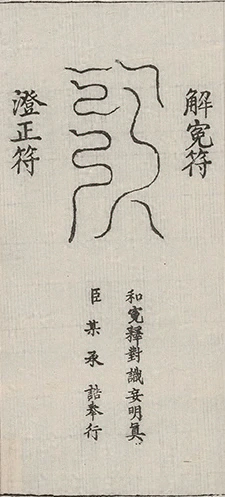 解冤符
澄正符
和冤釋對識妄明真
臣某承誥奉行